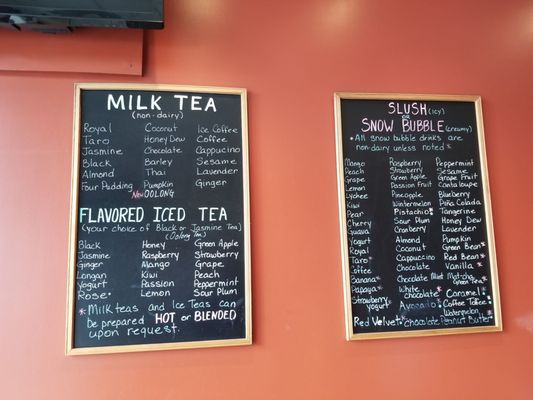 MILK TEA
(non-dairy)
Royal Coconut Ice Coffee
Taro Honey Dew Coffee
Jasmine Chocolate Cappuccino
Black Barley Sesame
Almond Thai Lavender
Four Pudding Pumpkin Ginger
New OOLONG
FLAVORED ICED TEA
(your choice of Black or Jasmine Tea)
(Oolong Tea)
Black Honey Green Apple
Jasmine Raspberry Strawberry
Ginger Mango Grape
Longan Kiwi Peach
Yogurt Passion Peppermint
Rose Lemon Sour Plum
* Milk teas and Ice Teas can
be prepared HOT or BLENDED
upon request.
SLUSH (icy)
or
SNOW BUBBLE (creamy)
* All snow bubble drinks are
non-dairy unless noted *
Mango Raspberry Peppermint
Peach Strawberry Sesame
Grape Green Apple Grape Fruit
Lemon Passion Fruit Cantaloupe
Lychee Pineapple Blueberry
Kiwi Watermelon Piña Colada
Pear Pistachio Tangerine
Cherry Sour Plum Honey Dew
Guava Cranberry Lavender
Yogurt Almond Pumpkin
Royal Coconut Green Bean*
Taro* Cappuccino Red Bean*
Coffee Chocolate Vanilla*
Banana* Chocolate Mint Matcha
Green Tea*
Papaya* White
Chocolate* Caramel*
Strawberry
Yogurt Avocado* Coffee Toffee*
Watermelon
Red Velvet* Chocolate Peanut Butter*